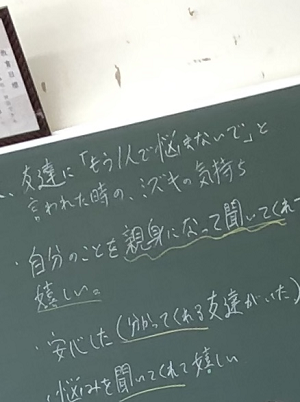 教育目標
、友達に「もう1人で悩まないで」と
言われた時の、ミズキの気持ち
・自分のことを親身になって聞いてくれて
嬉しい。
・安心した(分かってくれる友達がいた)
・悩みを聞いてくれて嬉しい